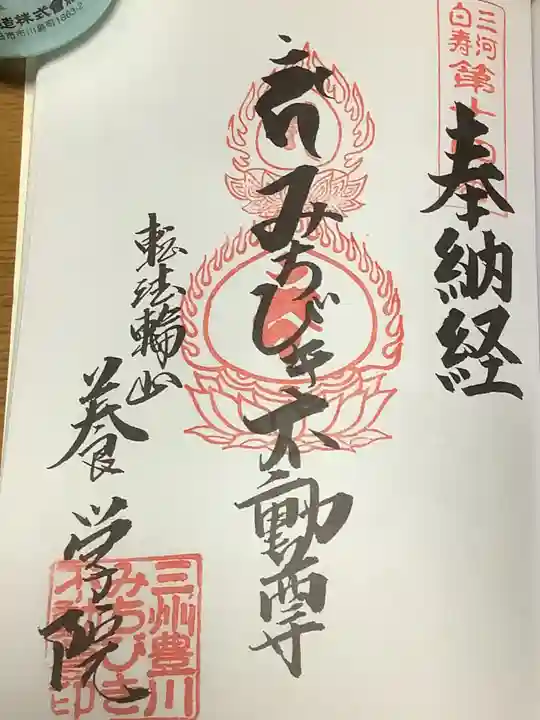 奉納経
三河
白寿
みちびき不動尊
転法輪山
養学院
三州豊川
みちびき
造株式會
市市川島町1663-2